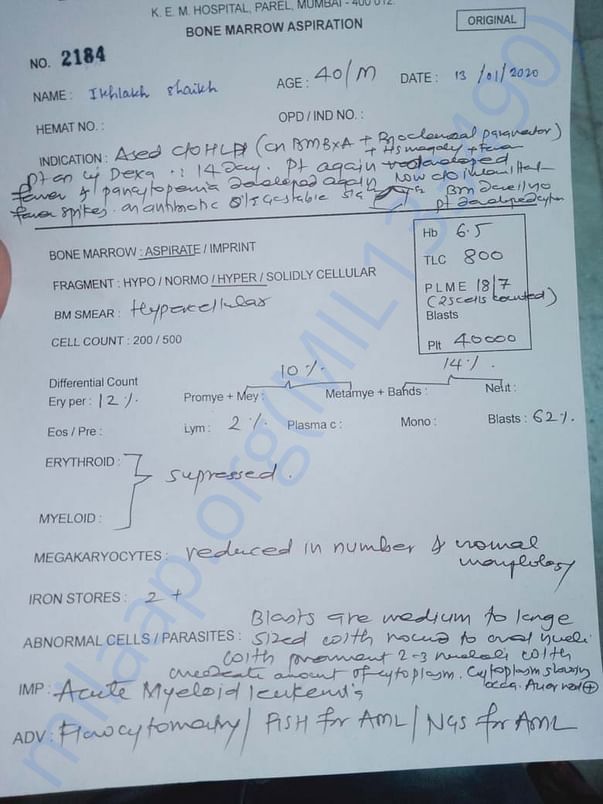 K. E. M. HOSPITAL, PAREL, MUMBAI - 400 012.
BONE MARROW ASPIRATION
ORIGINAL
NO. 2184
NAME : Ikhlakh Shaikh AGE : 40/M DATE : 13/01/2020
HEMAT NO. : OPD / IND NO. :
INDICATION : A sed c/o HLH (on BMBxA + Biochemical parameter)
+ HSmegaly + fever
Pt on inj Dexa . : 14 Day. Pt again
fever & pancytopenia developed again Now c/o
fever spikes. on antibiotic
BONE MARROW : ASPIRATE / IMPRINT
FRAGMENT : HYPO / NORMO / HYPER / SOLIDLY CELLULAR
BM SMEAR : Hypercellular
CELL COUNT : 200 / 500
Hb 6.5
TLC 800
PLME 18/7
(25 cells counted)
Blasts
Plt 40000
Differential Count
Ery per : 12 %. Promye + Mey : 10 %. Metamye + Bands : 14 %. Neut :
Eos / Pre : Lym : 2 %. Plasma c : Mono : Blasts : 62 %.
ERYTHROID :
supressed.
MYELOID :
MEGAKARYOCYTES : reduced in number & normal
morphology
IRON STORES : 2 +
ABNORMAL CELLS / PARASITES : Blasts are medium to large
sized with round to oval nuclei
with prominent 2-3 nucleoli with
moderate amount of cytoplasm. Cytoplasm showing
occa. Auer rod ⊕
IMP : Acute Myeloid leukemia
ADV : Flowcytometry / FISH for AML / NGS for AML
milaap.org(MIL133490)